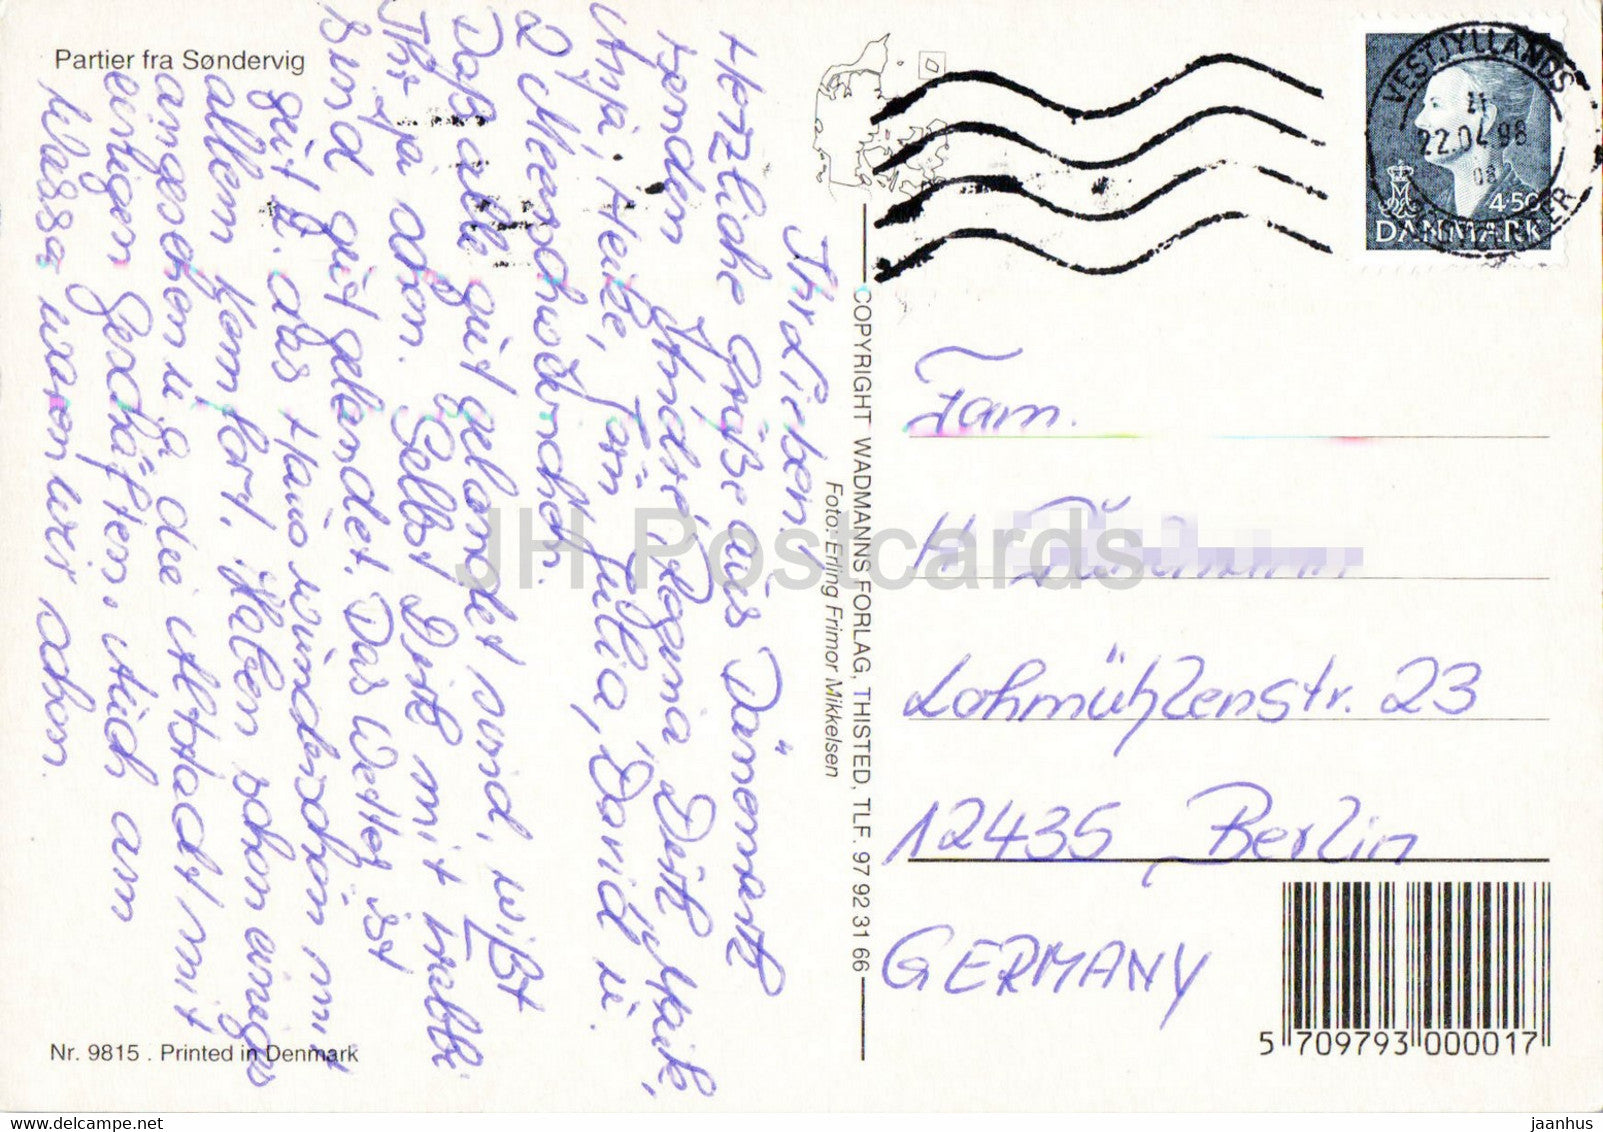 Partier fra Søndervig
Ihr Lieben!
Herzliche Grüße aus Dänemark
senden André, Regina, Dirk, Maik,
Anja, Heike, Tom, Julia, David u.
2 Meerschweinchen.
Daß alle gut gelandet sind, wißt
Ihr ja schon. Selbst Dirk mit Krabbi
sind gut gelandet. Das Wetter ist
gut u. das Haus wunderschön mit
allem Komfort. Haben schon einiges
angesehen u.a. die Altstadt mit
einigen Geschäften. Auch am
Wasser waren wir schon.
Nr. 9815 . Printed in Denmark
COPYRIGHT WADMANNS FORLAG, THISTED, TLF. 97 92 31 66
Foto: Erling Frimor Mikkelsen
VESTJYLLANDS
22.04.98
4.50
DANMARK
Fam.
H.
Lohmühlenstr. 23
12435 Berlin
GERMANY
5 709793 000017
JH Postcards
www.delcampe.net
jaanhus